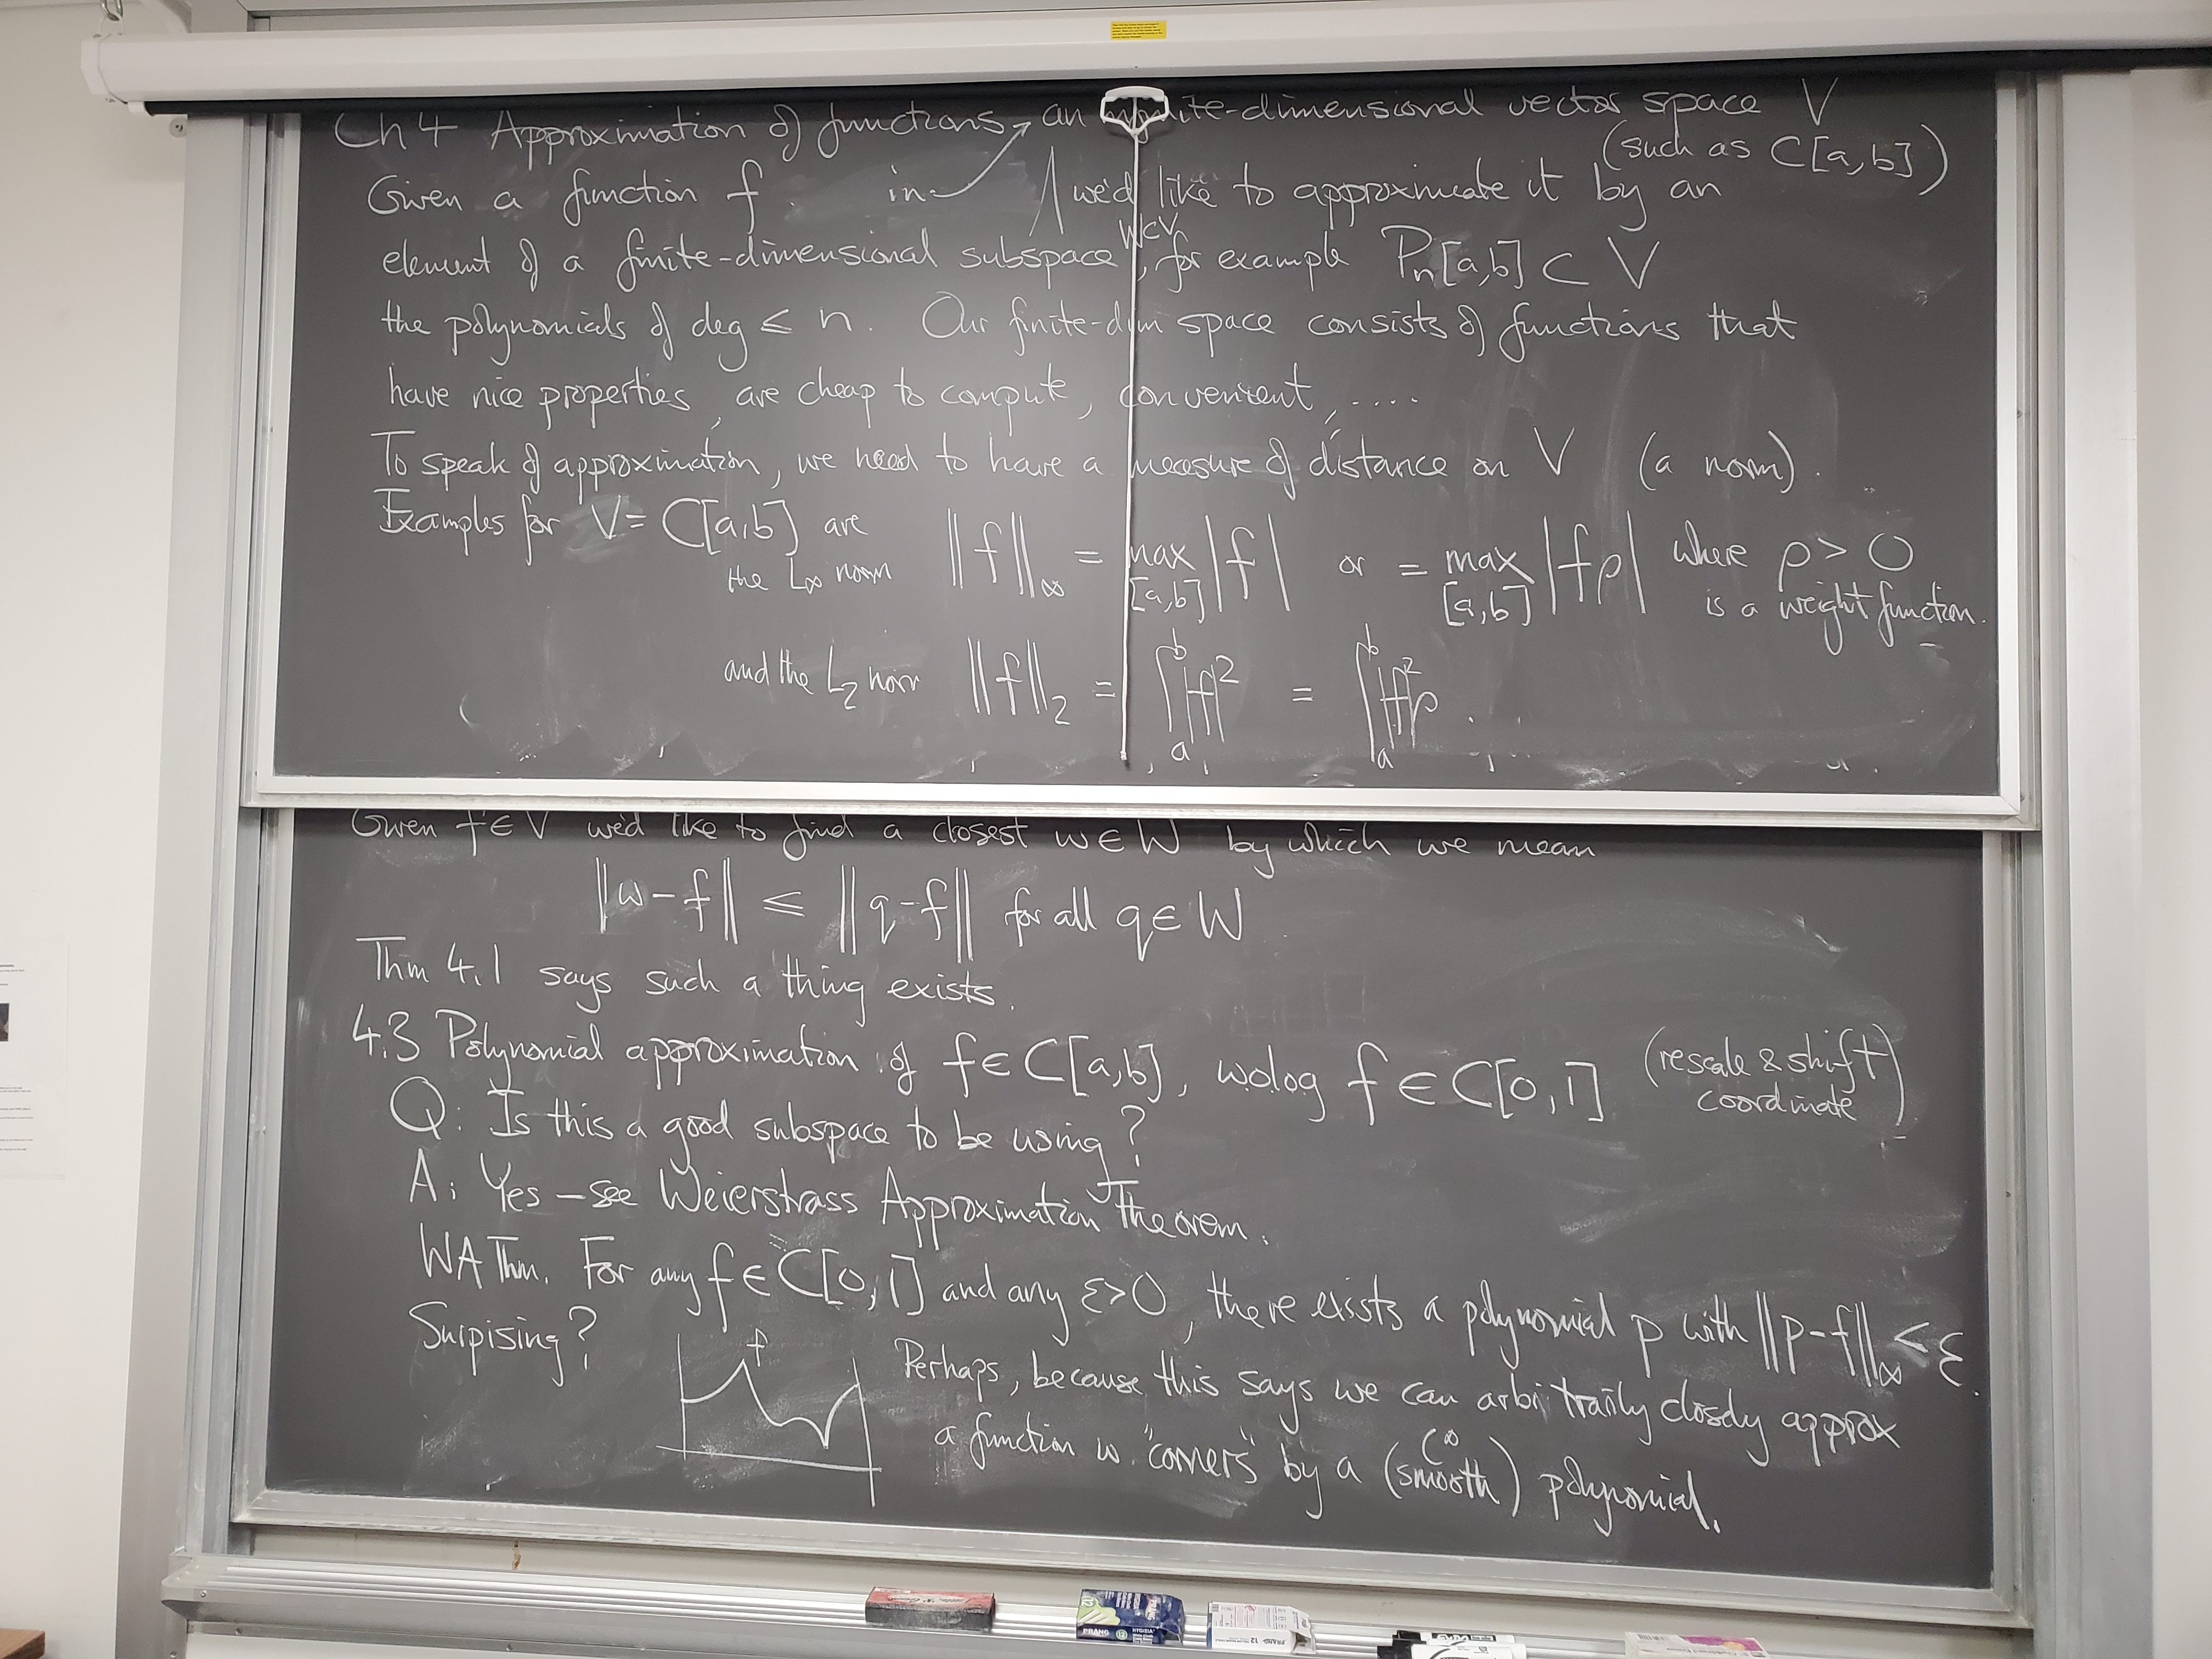 Ch 4 Approximation of functions, an infinite-dimensional vector space V
(such as C[a,b])
Given a function f in we'd like to approximate it by an
element of a finite-dimensional subspace W⊂V, for example Pn[a,b] ⊂ V
the polynomials of deg ≤ n. Our finite-dim space consists of functions that
have nice properties, are cheap to compute, convenient, ....
To speak of approximation, we need to have a measure of distance on V (a norm).
Examples for V = C[a,b] are
the L∞ norm ||f||∞ = max[a,b] |f| or = max[a,b] |fρ| where ρ > 0
is a weight function.
and the L2 norm ||f||2 = ∫_a^b |f|² = ∫_a^b |f|²ρ.
Given f ∈ V we'd like to find a closest w ∈ W by which we mean
||w-f|| ≤ ||q-f|| for all q ∈ W
Thm 4.1 says such a thing exists.
4.3 Polynomial approximation of f ∈ C[a,b], wolog f ∈ C[0,1] (rescale & shift
coordinate)
Q: Is this a good subspace to be using?
A: Yes – see Weierstrass Approximation Theorem.
WA Thm. For any f ∈ C[0,1] and any ε>0, there exists a polynomial p with ||p-f||∞ < ε.
Surpising?
f
Perhaps, because this says we can arbitrarily closely approx
a function w. "corners" by a (smooth) polynomial.
C∞
PRANG
12
HYGIEIA
PRANG 12